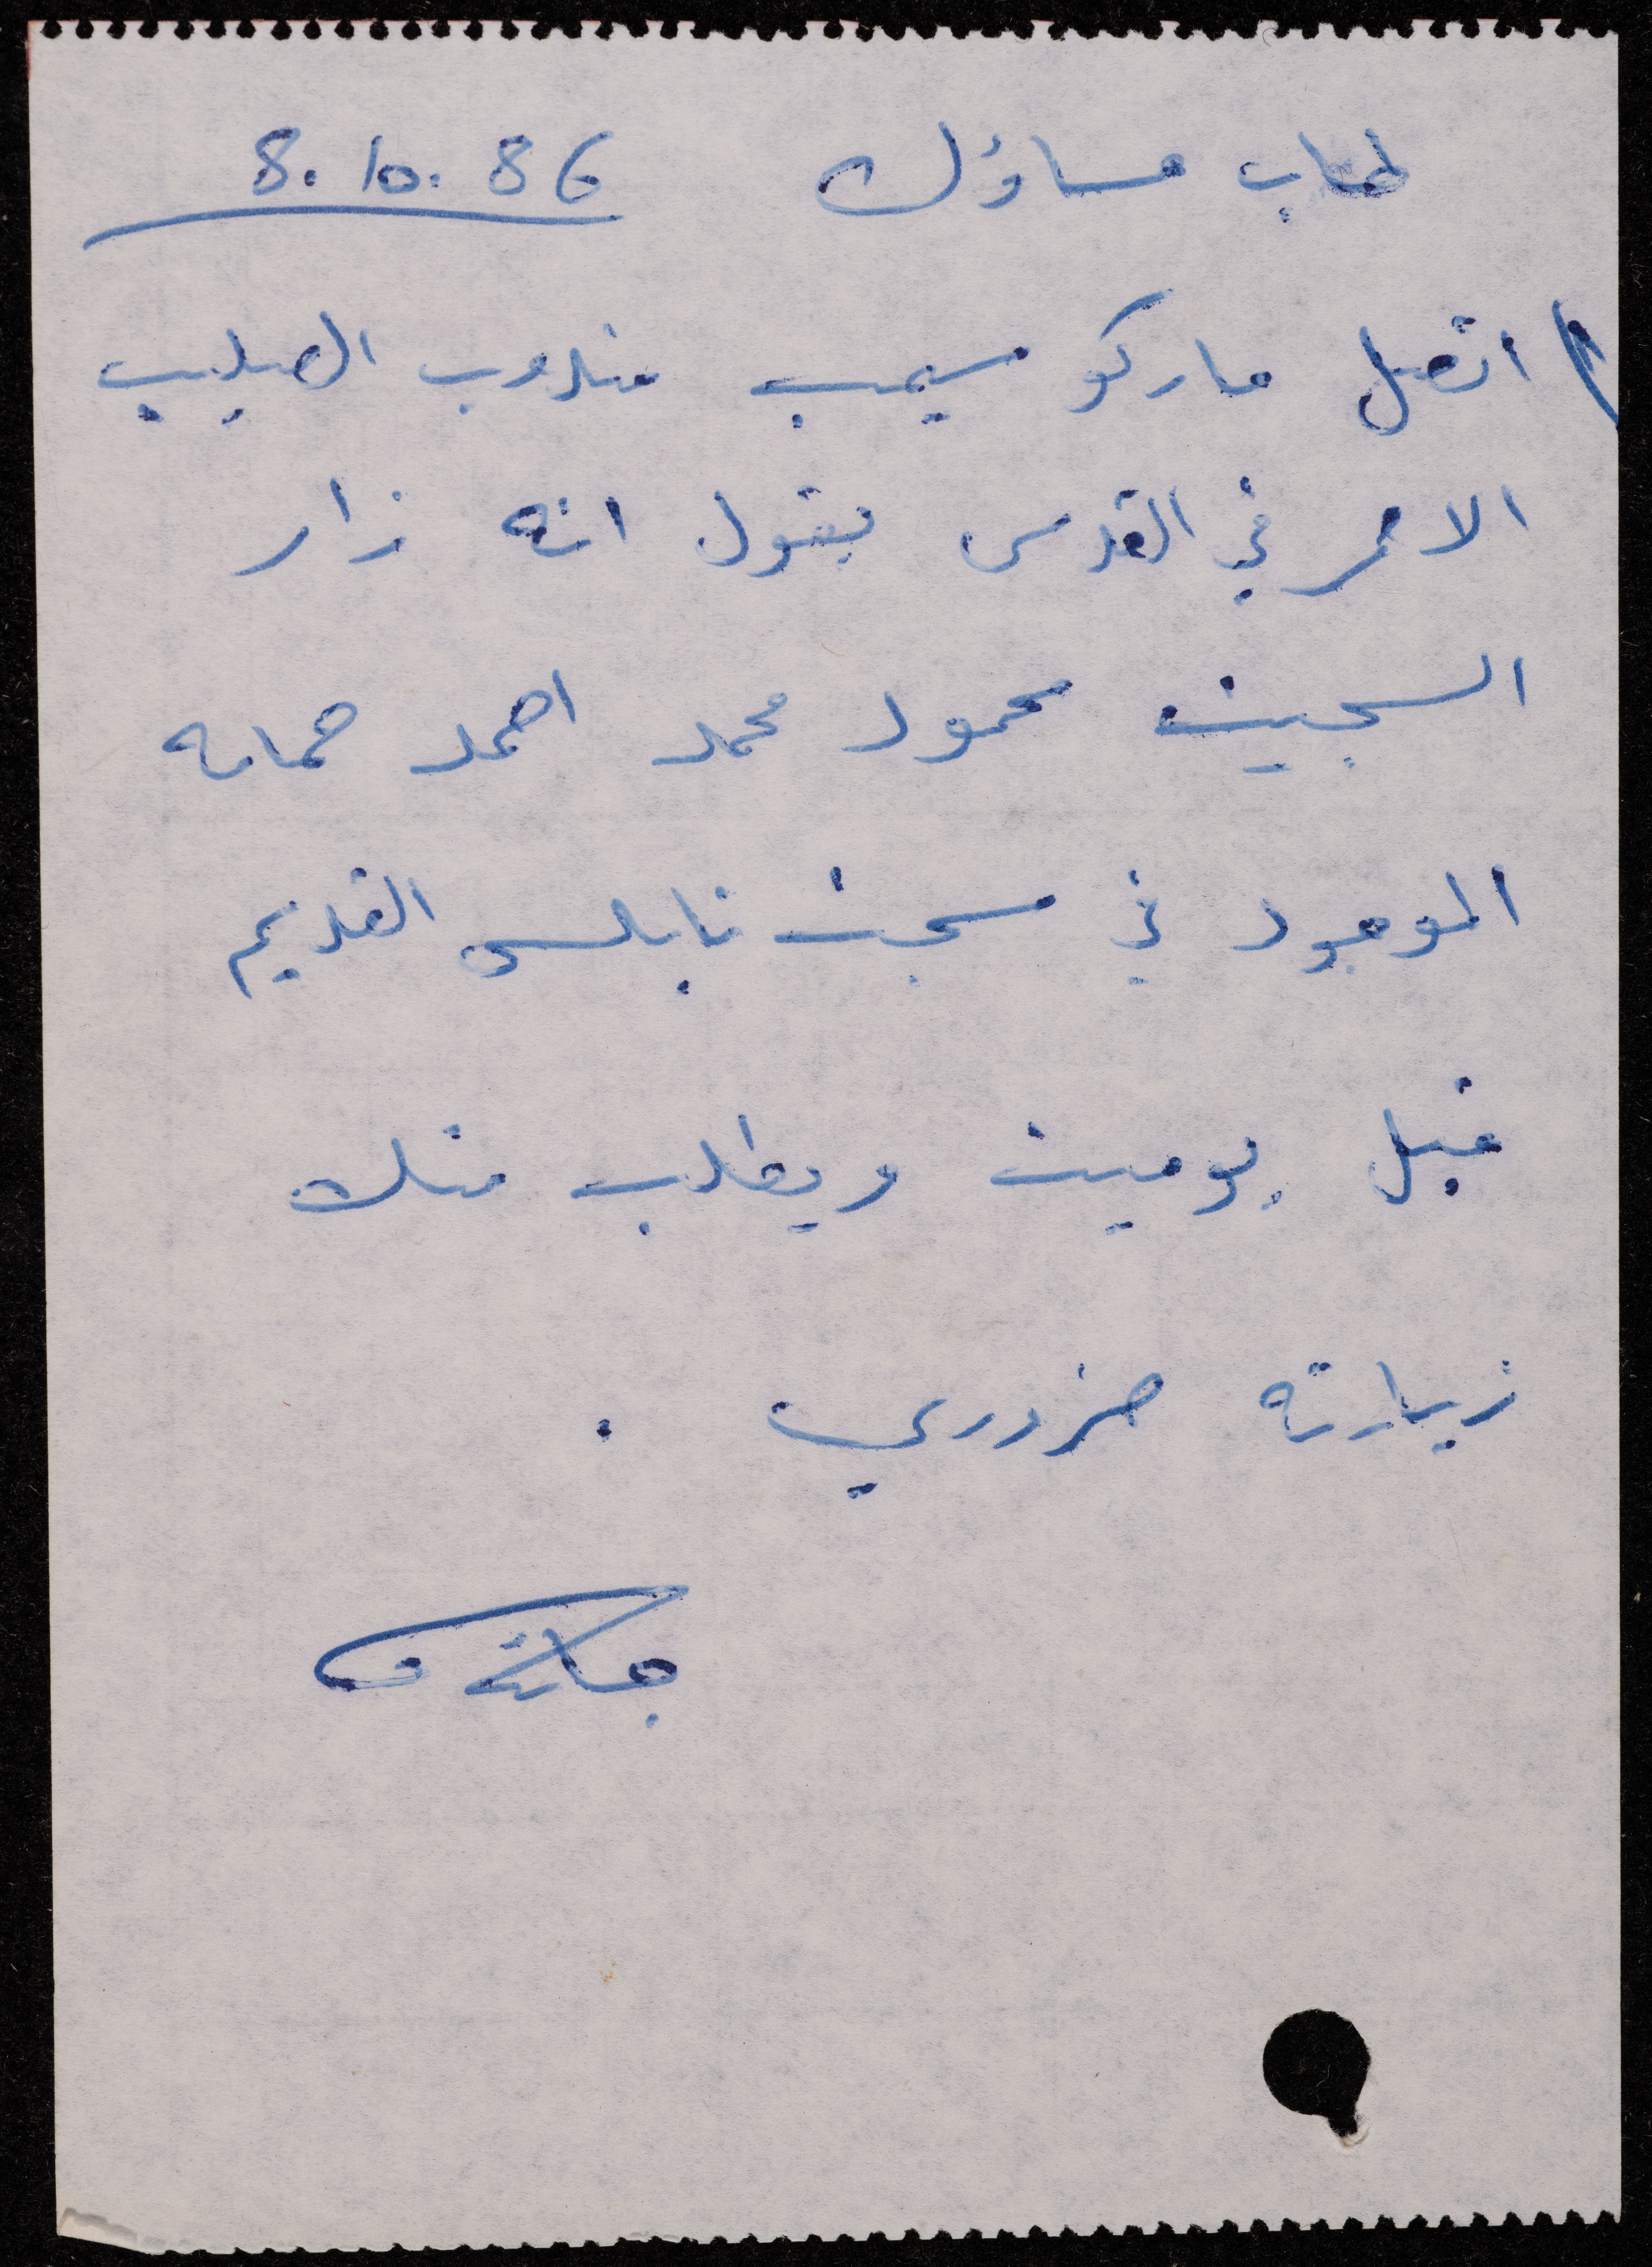 طاب مساؤك 8.10.86
١) اتصل ماركو سيمب مندوب الصليب
الاحمر في القدس يقول انه زار
السجين محمود محمد احمد حمامه
الموجود في سجن نابلس القديم
قبل يومين ويطلب منك
زيارته ضروري .